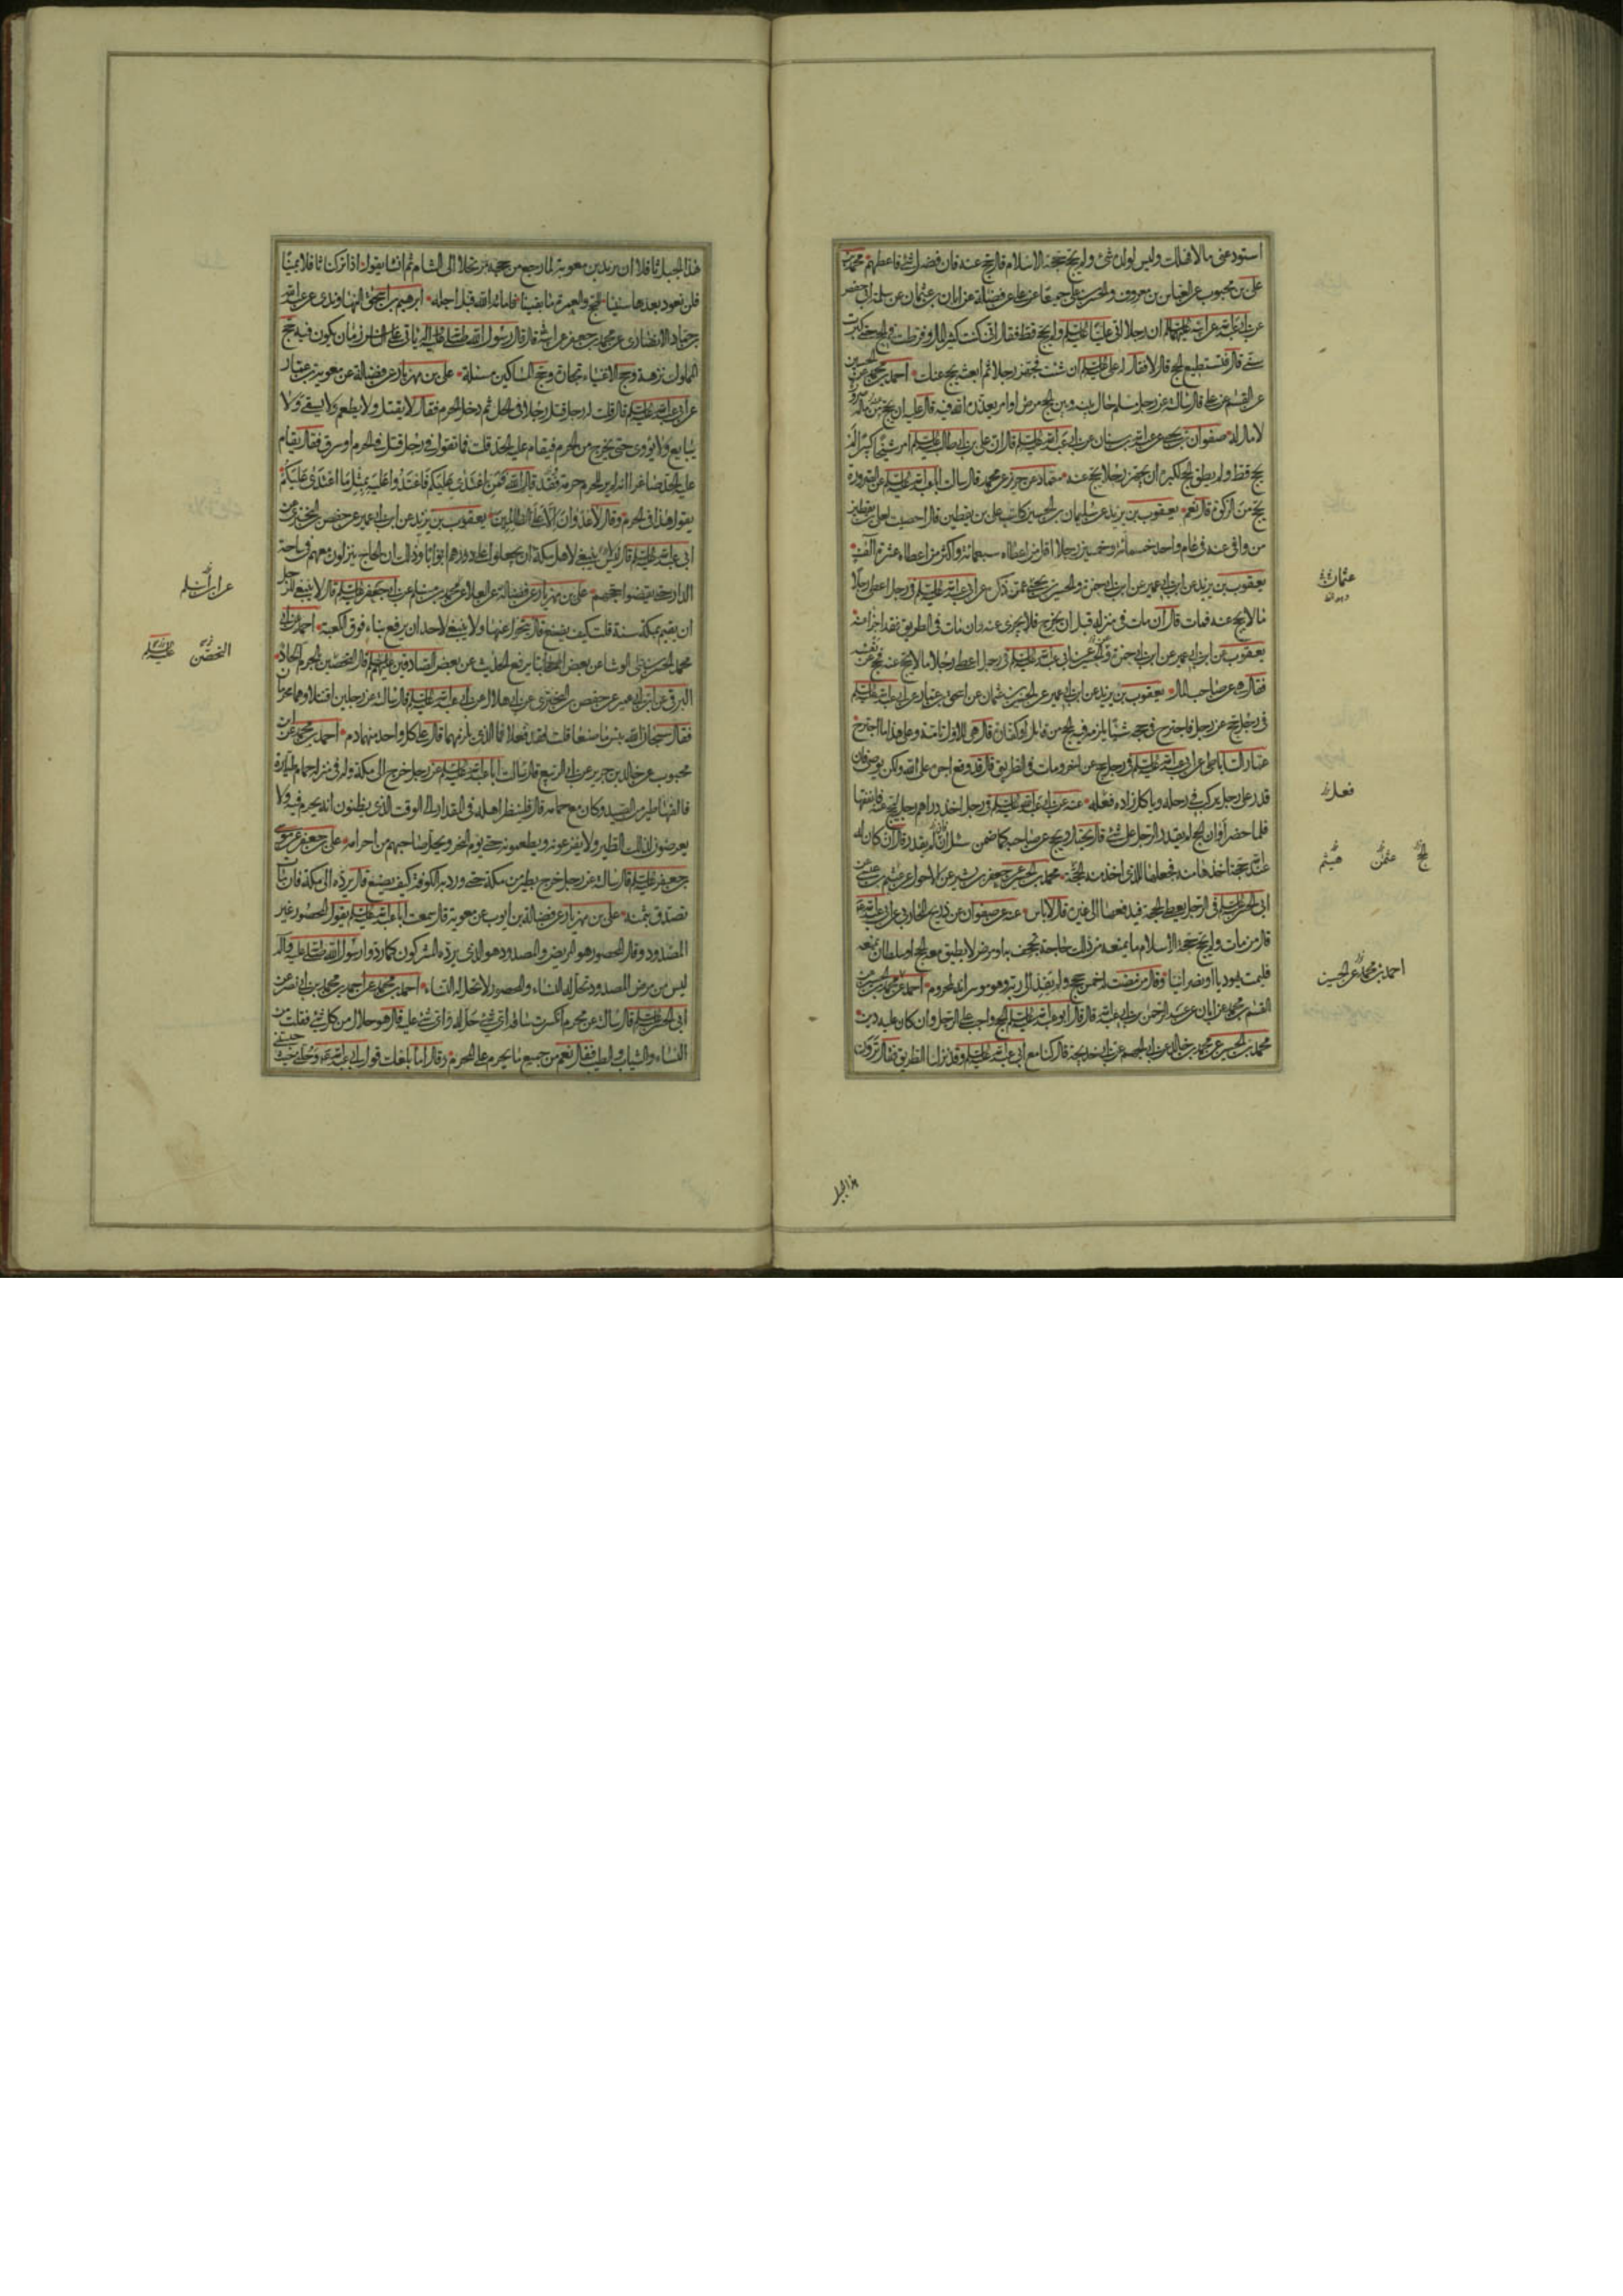 استودعنی مالا فهلك وليس لولده شئ ولم يحج حجة الاسلام قال حج عنه فان فضل شئ فاعطهم محمد بن
على بن محبوب عن العباس بن معروف والحسن بن على جميعا عن على عن فضالة عن ابان بن عثمان عن سلمة ابى حفص
عن ابى عبد الله عن ابيه عليهما السلام ان رجلا اتى عليا عليه السلم ولم يحج قط فقال انى كنت كثير المال وفرطت فى الحج حتى كبرت
سنى قال فتستطيع الحج قال لا فقال له على عليه السلم ان شئت فجهز رجلا ثم ابعثه يحج عنك احمد بن محمد عن الحسين
عن القسم عن على قال سالته عن رجل مسلم حال بينه وبين الحج مرض او امر يعذره الله فيه قال عليه ان يحج عنه من ماله صرورة
لا مال له صفوان بن يحيى عن عبد الله بن سنان عن ابى عبد الله عليه السلم قال ان على بن ابى طالب عليه السلم امر شيخا كبيرا لم
يحج قط ولم يطق الحج لكبره ان يجهز رجلا يحج عنه حماد عن حريز عن محمد قال سالت ابا عبد الله عليه السلم عن الصرورة
يحج من الزكوة قال نعم يعقوب بن يزيد عن سليمان بن الحسين كاتب على بن يقطين قال احصيت لعلى بن يقطين
من وافى عنه فى عام واحد خمسمائة وخمسين رجلا اقل من اعطاه سبعمائة واكثر من اعطاه عشرة آلاف
يعقوب بن يزيد عن ابن ابى عمير عن ابن ابى حمزة والحسين بن يحيى عمن ذكره عن ابى عبد الله عليه السلم فى رجل اعطى رجلا
مالا يحج عنه فمات قال ان مات فى منزله قبل ان يخرج فلا يجزى عنه وان مات فى الطريق فقد اجزا عنه
يعقوب عن ابن ابى عمير عن ابن ابى حمزة والحسين عن ابى عبد الله عليه السلم فى رجل اعطى رجلا مالا يحج عنه فحج عن نفسه
فقال هى عن صاحب المال يعقوب بن يزيد عن ابن ابى عمير عن الحسين بن عثمان عن اسحق بن عمار عن ابى عبد الله عليه السلم
فى رجل حج عن رجل فاجترح فى حجه شيئا يلزمه فيه الحج من قابل او كفارة قال هى للاول تامة وعلى هذا ما اجترح
عمار الساباطى عن ابى عبد الله عليه السلم فى رجل حج عن اخر ومات فى الطريق قال قد وقع اجره على الله ولكن يوصى فان
قدر على رجل يركب فى رحله وياكل زاده فعله عنه عن ابى عبد الله عليه السلم فى رجل اخذ دراهم رجل ليحج عنه فانفقها
فلما حضر اوان الحج لم يقدر الرجل على شئ قال يحتال ويحج عن صاحبه كما ضمن سئل ان لم يقدر قال ان كان له
عند الله حجة اخذها منه فجعلها للذى اخذ منه الحجة محمد بن الحسين عن جعفر بن بشير عن الاحول عن عثيم بن عيسى عن
ابى الحسن عليه السلم فى الرجل يعطى الحجة فيدفعها الى غيره قال لا باس عنه عن صفوان عن ذريح المحاربى عن ابى عبد الله ع
قال من مات ولم يحج حجة الاسلام ما يمنعه من ذلك حاجة تجحف به او مرض لا يطيق معه الحج او سلطان يمنعه
فليمت يهوديا او نصرانيا وقال من مضت له خمس حجج ولم يفد الى ربه وهو موسر انه لمحروم احمد عن محمد بن الحسن عن
القسم بن محمد عن ابان عن عبد الرحمن بن ابى عبد الله قال قال ابو عبد الله عليه السلم الحج واجب على الرجل وان كان عليه دين
محمد بن الحسين عن محمد بن خالد عن ابى الجهم عن ابى خديجة قال كنا مع ابى عبد الله عليه السلم وقد نزلنا الطريق فقال ترون
عثمان
فعل
الحج
عثمن
هيثم
احمد بن محمد عن الحسين
هذا الجبل
هذا الجبل ثافلا ان يزيد بن معوية لما رجع من حجه مرتحلا الى الشام ثم انشا يقول اذا تركنا ثافلا يمينا
فلن نعود بعدها سنينا للحج والعمرة ما بقينا فاماته الله قبل اجله ابرهيم بن اسحق النهاوندى عن عبد الله
بن حماد الانصارى عن محمد بن جعفر عن ابيه قال قال رسول الله صلى الله عليه وآله ياتى على الناس زمان يكون فيه حج
الملوك نزهة وحج الاغنياء تجارة وحج المساكين مسئلة على بن مهزيار عن فضالة عن معوية بن عمار
عن ابى عبد الله عليه السلم قال قلت له رجل قتل رجلا فى الحل ثم دخل الحرم فقال لا يقتل ولا يطعم ولا يسقى ولا
يبايع ولا يؤوى حتى يخرج من الحرم فيقام عليه الحد قلت فما تقول فى رجل قتل فى الحرم او سرق فقال يقام
عليه الحد صاغرا انه لم ير للحرم حرمة فقد قال الله فمن اعتدى عليكم فاعتدوا عليه بمثل ما اعتدى عليكم
يقول هذا فى الحرم وقال لا عدوان الا على الظالمين يعقوب بن يزيد عن ابن ابى عمير عن حفص بن البخترى عن
ابى عبد الله عليه السلم قال ليس ينبغى لاهل مكة ان يجعلوا على دورهم ابوابا وذلك ان الحاج ينزلون معهم فى ساحة
الدار حتى يقضوا حجهم على بن مهزيار عن فضالة عن العلا عن محمد بن مسلم عن ابى جعفر عليه السلم قال لا ينبغى للرجل
ان يقيم بمكة سنة قلت كيف يصنع قال يتحول عنها ولا ينبغى لاحد ان يرفع بناء فوق الكعبة احمد عن ابى
محمد الحسن بن على الوشا عن بعض اصحابنا يرفع الحديث عن بعض الصادقين عليهم السلم قال التحصين بالحرم الحاد
البرقى عن ابن ابى عمير عن حفص بن البخترى عن ابى هلال عن ابى عبد الله عليه السلم قال سالته عن رجلين اقتتلا وهما محرمان
فقال سبحان الله بئس ما صنعا قلت لقد فعلا فما الذى يلزمهما قال على كل واحد منهما دم احمد بن محمد عن ابن
محبوب عن خالد بن جرير عن ابى الربيع قال سالت ابا عبد الله عليه السلم عن رجل خرج الى مكة وله فى منزله حمام طيارة
فالفها طير من الصيد وكان مع حمامه قال فلينظر اهله فى المقدار الى الوقت الذى يظنون انه يحرم فيه ولا
يعرضون لذلك الطير ولا يفزعونه ويطعمونه حتى يوم النحر ويحل صاحبهم من احرامه على بن جعفر عن موسى
بن جعفر عليه السلم قال سالته عن رجل خرج بطير من مكة حتى ورد به الكوفة كيف يصنع قال يرده الى مكة فان مات
تصدق بثمنه على بن مهزيار عن فضالة بن ايوب عن معوية قال سمعت ابا عبد الله عليه السلم يقول المحصور غير
المصدود وقال المحصور هو المريض والمصدود هو الذى يرده المشركون كما ردوا رسول الله صلى الله عليه وآله
ليس من مرض المصدود تحل له النساء والمحصور لا تحل له النساء احمد بن محمد عن احمد بن محمد بن ابى نصر عن
ابى الحسن عليه السلم قال سالته عن محرم انكسرت ساقه اى شئ حل له واى شئ عليه قال هو حلال من كل شئ فقلت من
النساء والثياب والطيب فقال نعم من جميع ما يحرم على المحرم وقال اما بلغك قول ابى عبد الله ع وحلنى حيث حبستنى